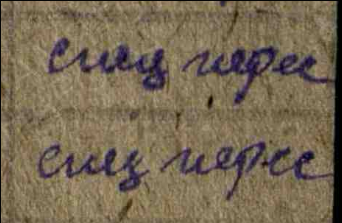 спец перес
спец перес